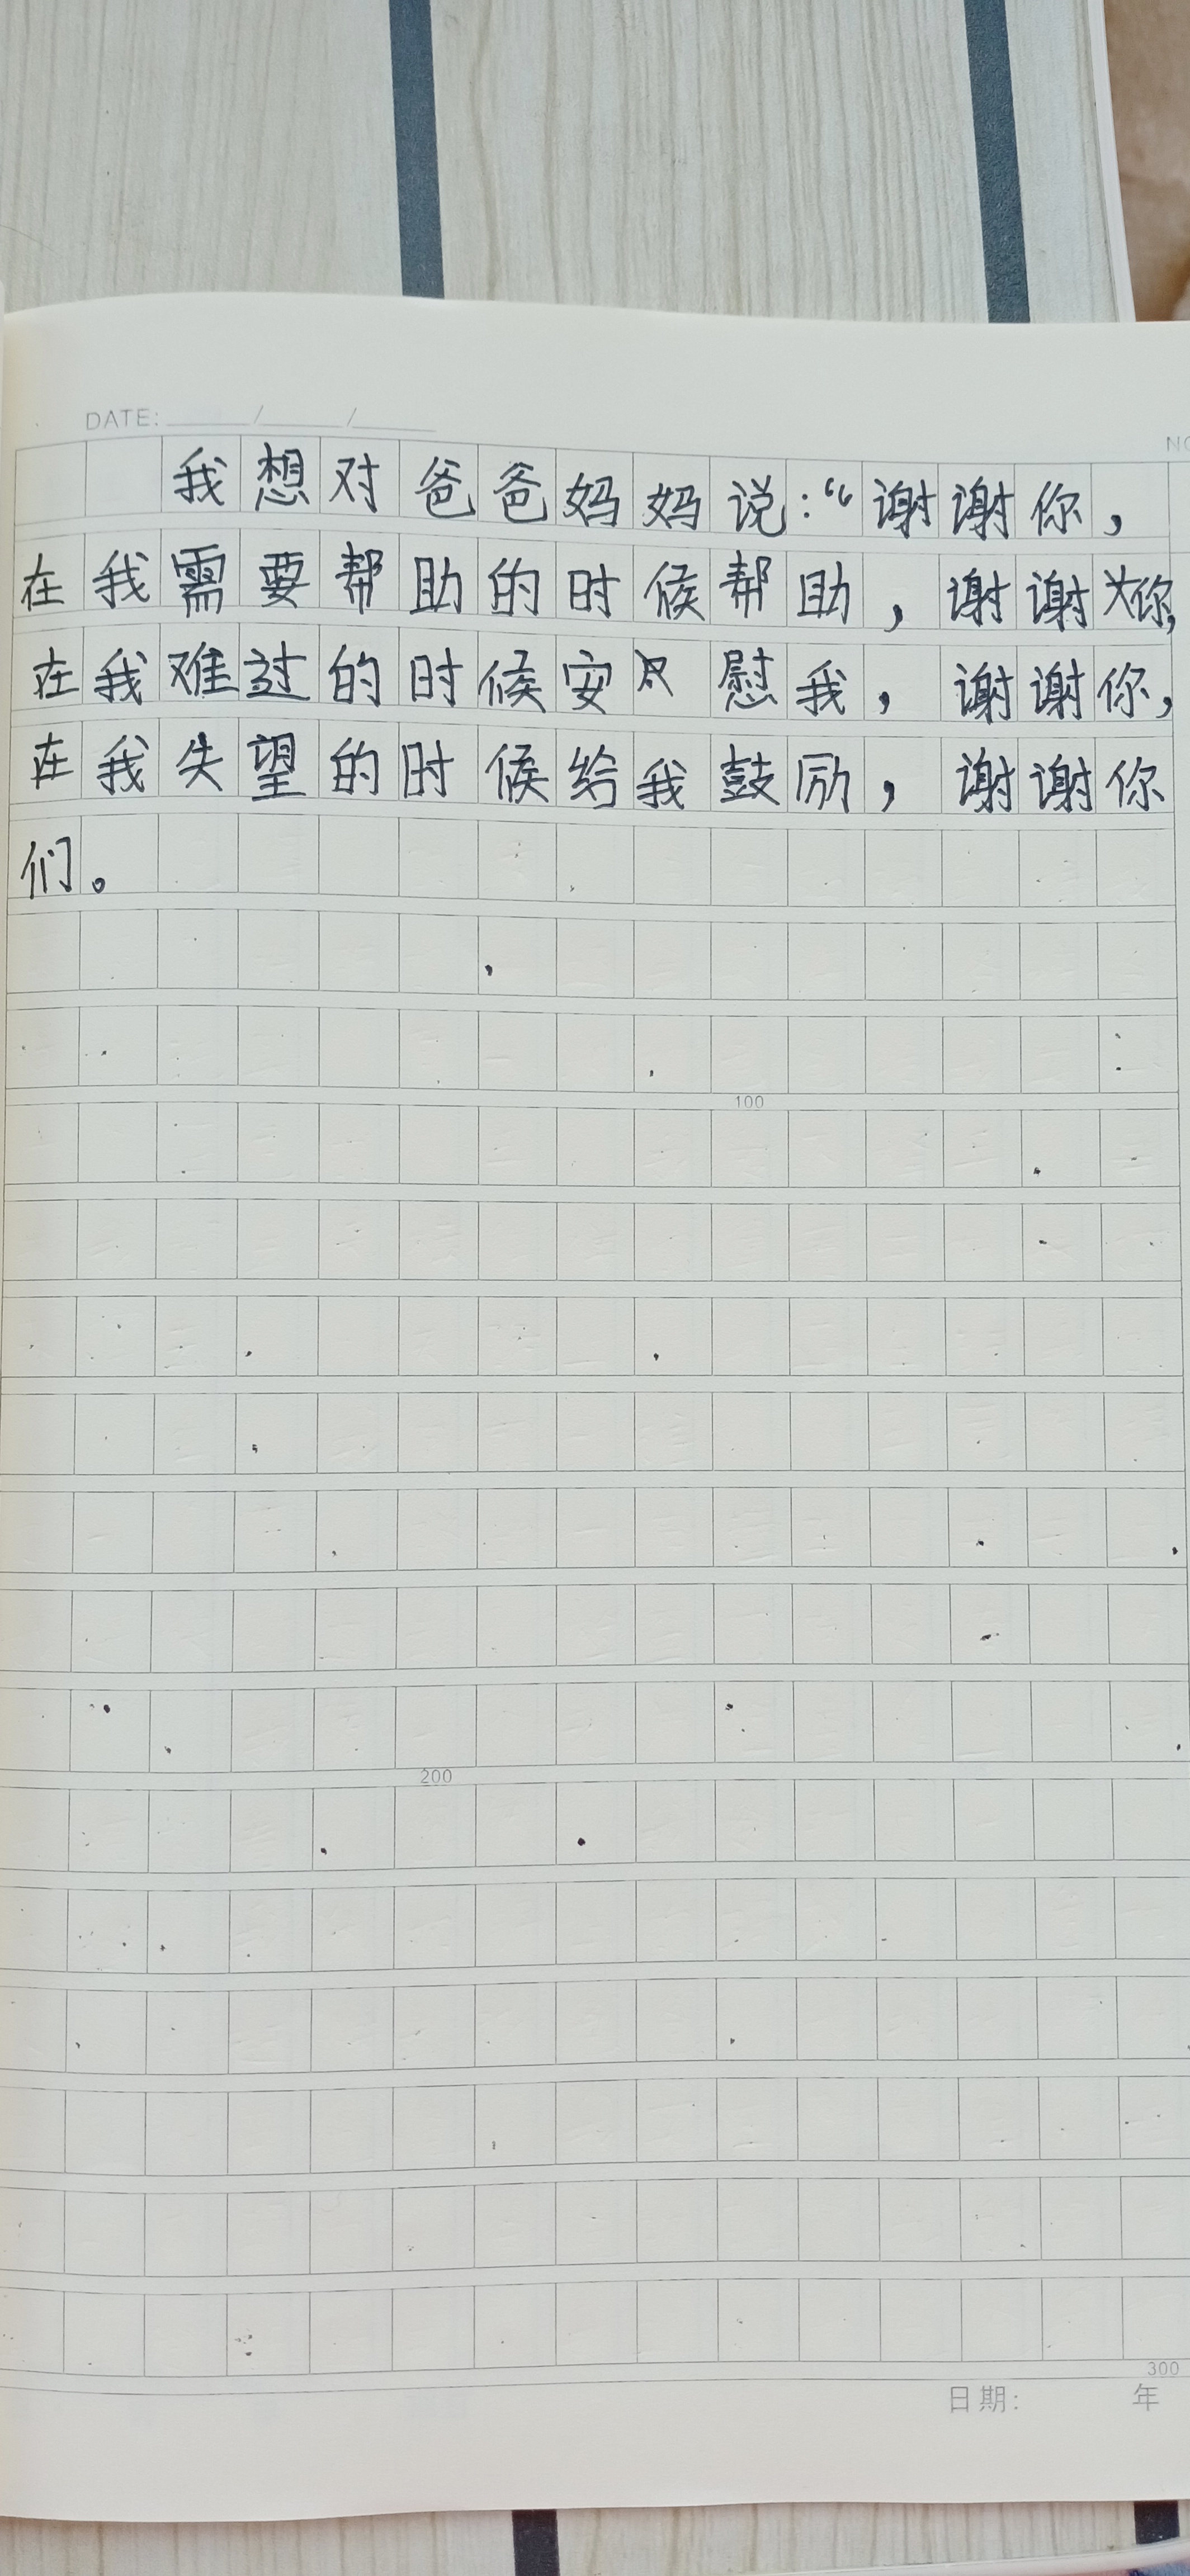 DATE: / /
NO
我想对爸爸妈妈说:“谢谢你,
在我需要帮助的时候帮助,谢谢你,
在我难过的时候安慰我,谢谢你,
在我失望的时候给我鼓励,谢谢你
们。
100
200
300
日期: 年